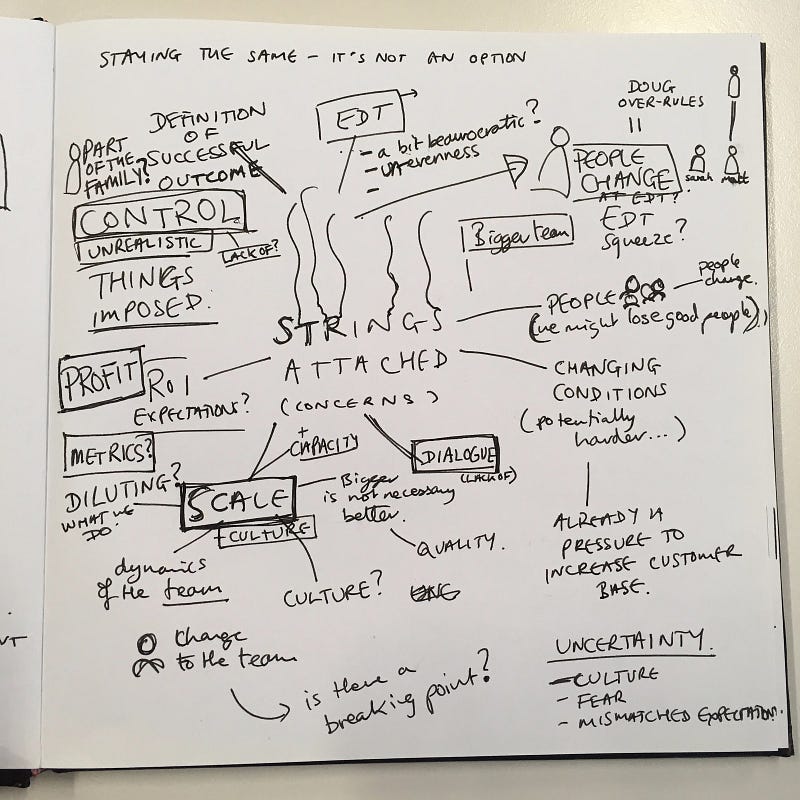 STAYING THE SAME – IT'S NOT AN OPTION
PART
OF THE
FAMILY?
DEFINITION
OF
SUCCESSFUL
OUTCOME
EDT
- a bit beaurocratic?
- unevenness
-
DOUG
OVER-RULES
PEOPLE
CHANGE
AT EDT?
sarah
matt
EDT
Squeeze?
CONTROL
UNREALISTIC
LACK OF?
THINGS
IMPOSED.
Bigger team
STRINGS
ATTACHED
(CONCERNS)
PEOPLE
people
change.
(we might lose good people)
PROFIT
ROI
EXPECTATIONS?
CHANGING
CONDITIONS
(potentially
harder...)
METRICS?
+
CAPACITY
DIALOGUE
(LACK OF)
DILUTING?
WHAT WE
DO?
SCALE
+ CULTURE
Bigger
is not necessary
better.
QUALITY.
ALREADY A
PRESSURE TO
INCREASE CUSTOMER
BASE.
dynamics
of the team
CULTURE?
Change
to the team
is there a
breaking point?
UNCERTAINTY.
- CULTURE
- FEAR
- MISMATCHED EXPECTATIONS.